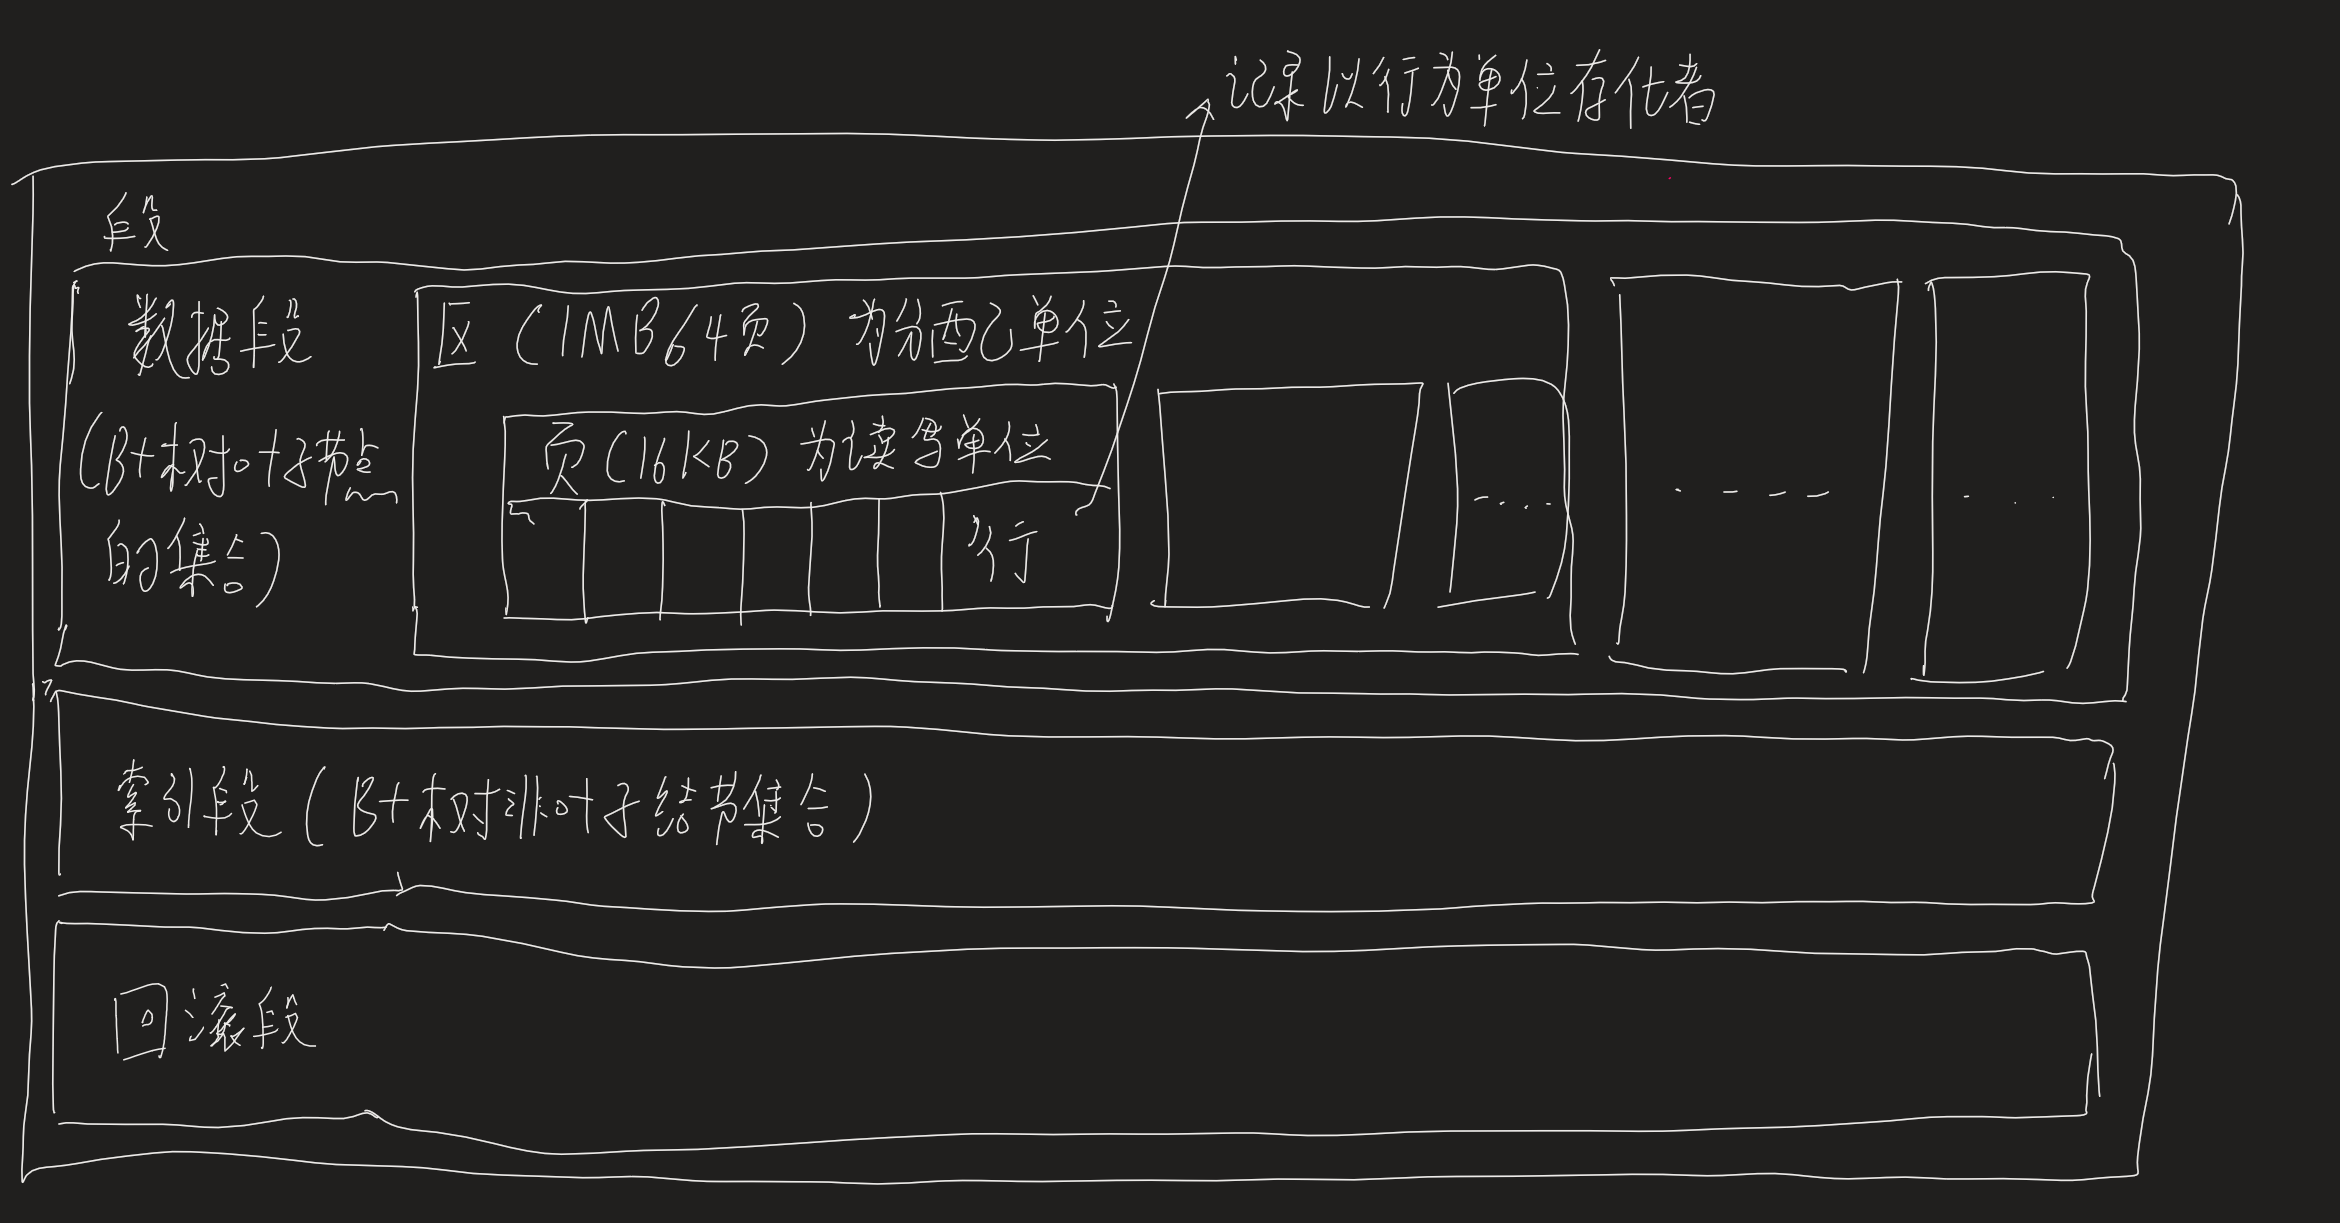 记录以行为单位存储
段
数据段
(B+树叶子节点
的集合)
区(1MB64页)为分配单位
页(16KB)为读写单位
行
索引段(B+树非叶子结节集合)
回滚段